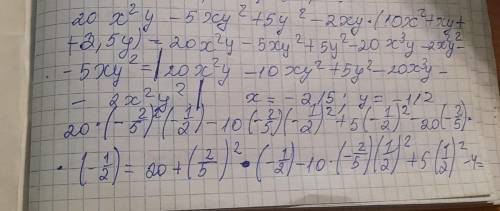 20 x²y - 5xy² + 5y² - 2xy·(10x² + xy +
+ 2,5y) = 20x²y - 5xy² + 5y² - 20x³y - 2x²y² -
- 5xy² = |20x²y - 10xy² + 5y² - 20x³y -
- 2x²y²| x = -2/5; y = -1/2
20·(-2/5)²(-1/2) - 10(-2/5)(-1/2)² + 5(-1/2)² - 20(-2/5)·
·(-1/2) = 20 + (2/5)²·(-1/2) - 10·(-2/5)(1/2)² + 5(1/2)² - 4=